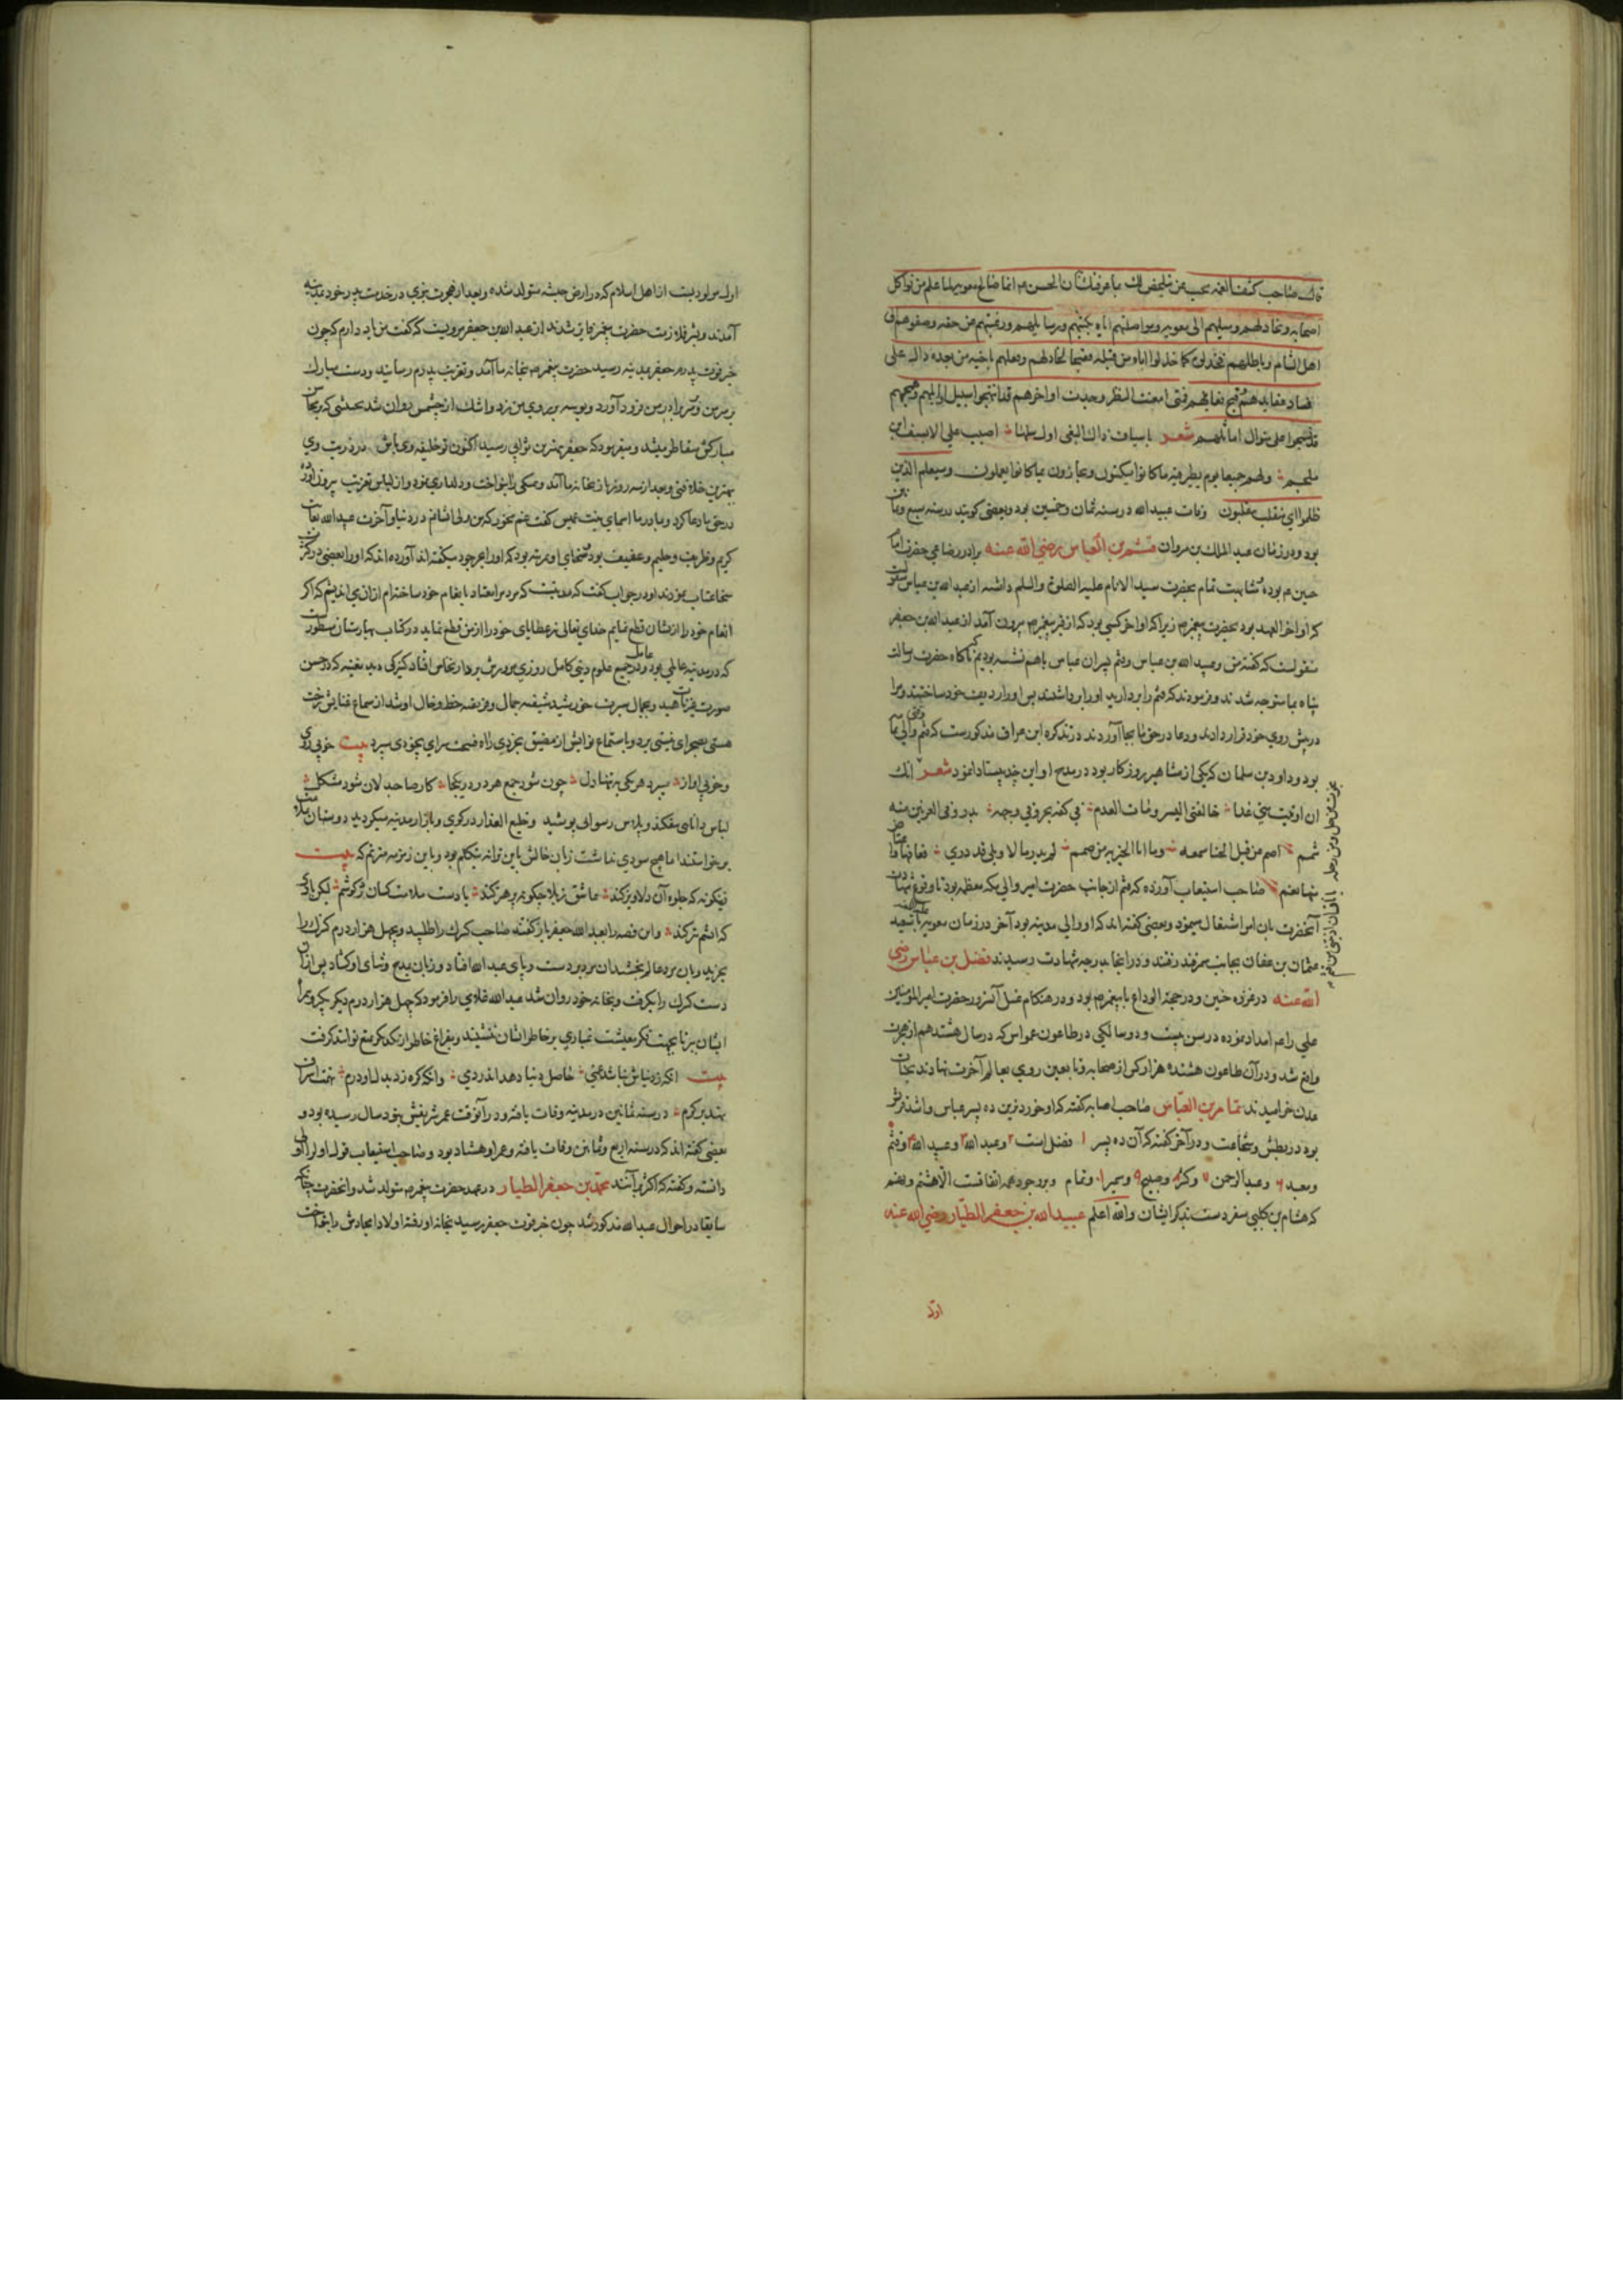 قال صاحب كشف الغمه عجب من بان الحسن عم انما صالح معويه لما علم من تواكل
اصحابه وتخاذلهم وميلهم الى معويه ومواصلتهم اياه بكتبهم ورسايلهم ورغبتهم عن حقه وصغوهم الى
اهل الشام وباطلهم كما خذلوا اباه من قبله لتخاذلهم وفعلهم باخيه من بعده دال على
فساد عقايدهم وقبح فعايلهم فتى امعنت النظر وجدت اواخرهم قد انتهجوا سبيل اوايلهم
على منوال امثالهم شعر باسياف ذاك البغي اول سلها اصيب علي لا بسيف ابن
ملجم ولهم جميعا يوم يظهر فيه ما كانوا يكتمون ويجازون بما كانوا يعملون وسيعلم الذين
ظلموا اي منقلب ينقلبون وفات عبيد الله در سنه ثمان وخمسين بود وبعضى كويند در سنه سبع وثمانين
بود ودر زمان عبد الملك بن مروان قثم بن العباس رضي الله عنه برادر رضاعي حضرت امام
حسين عم بوده مشابهت تمام بحضرت سيد الانام عليه الصلوة والسلم داشته از عبد الله بن عباس منقولست
كه او آخر العهد بود بحضرت پيغمبر صم زيرا كه او آخر كسى بود كه از قبر پيغمبر صم بيرون آمد از عبد الله بن جعفر
منقولست كه كفته من وعبيد الله بن عباس وقثم پسران عباس باهم نشسته بوديم كه ناكاه حضرت رسالت
پناه بما متوجه شدند وفرمودند كه قثم را برداريد او را برداشتند پس او را رديف خود ساختند ومرا
در پيش روى خود قرار دادند ودعا در حق ما بجا آوردند در تذكره ابن عراق مذكورست كه قثم والى
بود وداود بن سلمان كه يكى از مشاهير روزكار بود در مدح او اين چند بيت ادا نمود شعر انك
ان ادنيت مني غدا حالفني اليسر ومات العدم في كفه بحر وفي وجهه بدر وفى العرنين منه
شمم اصم عن قيل الخنا سمعه وما عن الخير به من صمم لم يدر ما لا وبلى قد درى فعافها واعتاض
منها نعم صاحب استيعاب آورده كه قثم از جانب حضرت امير والى مكه معظمه بود تا وقوع شهادت
آنحضرت بان امر اشتغال مينمود وبعضى كفته اند كه او والى مدينه بود آخر در زمان معويه با سعيد
بن عثمان بن عفان بجانب سمرقند رفتند ودر انجا بدرجه شهادت رسيدند فضل بن عباس رضى
الله عنه در غزوه حنين ودر حجة الوداع با پيغمبر صم بود ودر هنكام غسل آنسرور حضرت امير المومنين
علي را عم امداد نموده در سن بيست ودو سالكى در طاعون عمواس كه در سال هشتدهم از هجرت
واقع شد ودر آن طاعون هزار كس از صحابه وتابعين روى بعالم آخرت نهادند بجنات
عدن خراميدند تمام بن العباس صاحب اصابه كفته كه او خوردترين ده پسر عباس واشد قريش
بوده در بطش وشجاعت ودر آخر كفته كه آن ده پسر ١ فضل است ٢ وعبد الله ٣ وعبيد الله ٤ وقثم
ومعبد ٦ وعبد الرحمن ٧ وكثير ٨ وصبيح ٩ ومسهر ١٠ وتمام وبر وجود همه اتفاقست الا هشتم ونهم
كه هشام بن كلبي متفردست بذكر ايشان والله اعلم عبد الله بن جعفر الطيار رضي الله عنه
اول
اول مولوديست از اهل اسلام كه در ارض حبشه متولد شده وبعد از هجرت نبوي در خدمت پدر خود بمدينه
آمدند وبشرف ملازمت حضرت پيغمبر فايز شدند از عبد الله بن جعفر مرويست كه كفت من ياد دارم كه چون
خبر فوت پدرم جعفر بمدينه رسيد حضرت پيغمبر صم بخانه ما آمد وتعزيت پدرم رسانيد ودست مبارك
بر سر من وسر برادر من فرود آورد وبوسه بر روى من زد واشك از چشمش روان شد بحيثى كه بر محاسن
مباركش متقاطر ميشد وميفرمود كه جعفر بهترين ثوابي رسيد اكنون تو خليفه وى باش در ذريت وي
بهترين خلافتى وبعد از سه روز باز بخانه ما آمد وهمكى را بنواخت ودلدارى نمود واز لباس تعزيت بيرون آورد
در حق ما دعا كرد وبمادر ما اسماى بنت عميس كفت غم مخور كه من ولى ايشانم در دنيا وآخرت عبد الله بغايت
كريم وظريف وحليم وعفيف بود وسخاى او بمرتبه بود كه او را بحر جود ميكفته اند آورده اند كه او را بعضى در كثرت
سخا عتاب نمودند او در جواب كفت كه مدتيست كه مردم را معتاد بانعام خود ساخته ام از ان مى انديشم كه اكر
انعام خود را از ايشان قطع نمايم خداى تعالى نيز عطاياى خود را از من قطع نمايد در كتاب بهارستان مسطورست
كه در مدينه عالمي بود عامل ودر جميع علوم دينى كامل روزي مرورش بر دار نخاس افتاد كنيزكى ديد مغنيه كه در حسن
صورت غيرت ناهيد وبجمال سيرت خورشيد شيفته جمال وفريفته خط وخال او شد از سماع غنايش رخت
هستى بصحراى نيستى برد وباستماع نوايش از مضيق بخردى راه فسحت سراى بيخودى سپرد بيت خوبى روى
وخوبى آواز ميبرد هر يكى به تنها دل چون شود جمع هر دو در يكجا كار صاحبدلان شود مشكل
لباس دانايى بفكند وپلاس رسوائى پوشيد وخليع العذار در كوى وبازار مدينه ميكرديد دوستان بملامت
برخواستند اما هيچ سودى نداشت زبان حالش باين ترانه متكلم بود وباين زمزمه مترنم كه بيت
زينكونه كه جلوه آن دلاويز كند عاشق ز بلا چكونه پرهيز كند باديست ملامت كسان در كوشم ليكن بادى
كه آتشم تيز كند واين قصه را بعبد الله جعفر باز كفتند صاحب كنيزك را طلبيد وبچهل هزار درم كنيزك را
بخريد وبان مرد عالم بخشيد ان مرد بر دست وپاى عبد الله افتاد وزبان بمدح وثناى او كشاد پس از ان
دست كنيزك را بكرفت وبخانه خود روان شد عبد الله غلامى را فرمود كه چهل هزار درم ديكر بكير وهمراه
ايشان ببر تا بجهت فكر معيشت غبارى بر خاطر ايشان ننشيند وبفراغ خاطر از يكديكر تمتع توانند كرفت
بيت انكه ز دنياش نباشد غمى حاصل دنيا دهد اندر دمى وانكه كره زد بدل او درم تهمت ايران
نهندش بر كرم در سنه ثمانين در مدينه وفات يافته ودر آنوقت عمر شريفش بنود سال رسيده بود و
بعضى كفته اند كه در سنه اربع وثمانين وفات يافته وعمر او هشتاد بود وصاحب استيعاب قول اول را اولى
دانسته وكفته كه اكثر بر آنند محمد بن جعفر الطيار در عهد حضرت پيغمبر صم متولد شد وانحضرت چنانكه
سابقا در احوال عبد الله مذكور شد چون خبر فوت جعفر رسيد بخانه او رفته اولاد امجادش را بنواخت